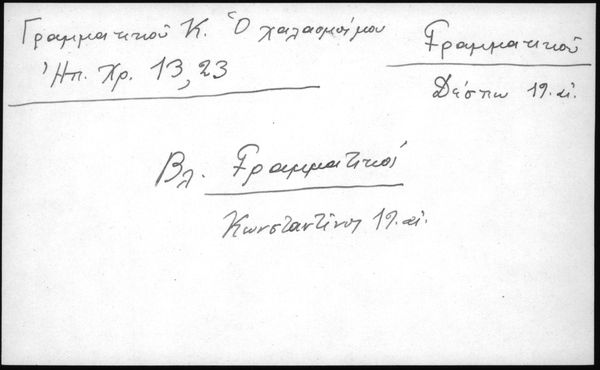 Γραμματικού Κ. Ὁ χαλασμοί μου
Ἠπ. Χρ. 13, 23
Γραμματικού
Δέσπω 19. αἰ.
Βλ. Γραμματικοί
Κωνσταντίνος 19. αἰ.